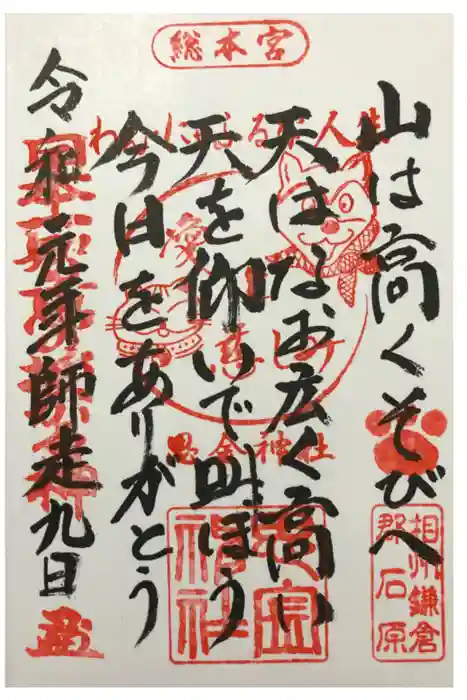 総本宮
山は高くそびへ
天はなお広く高い
天を仰いで叫ほう
今日をありがとう
令和元年師走九日
思金神社
相州鎌倉
郡石原
思金
神社